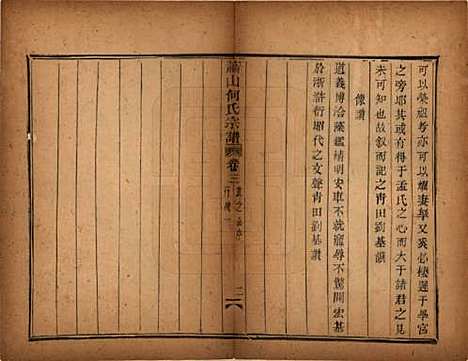 可以榮祖考亦可以耀妻孥又奚必棲遲于學宮
之旁耶其或有得于孟氏之心而大于諸君之見
未可知也故叙而記之青田劉基識
像讚
道義博洽藻鑑禎明安車不就寵辱不驚開宏基
於浙滸衍昭代之文聲青田劉基讚
蕭山何氏宗譜
卷三
二